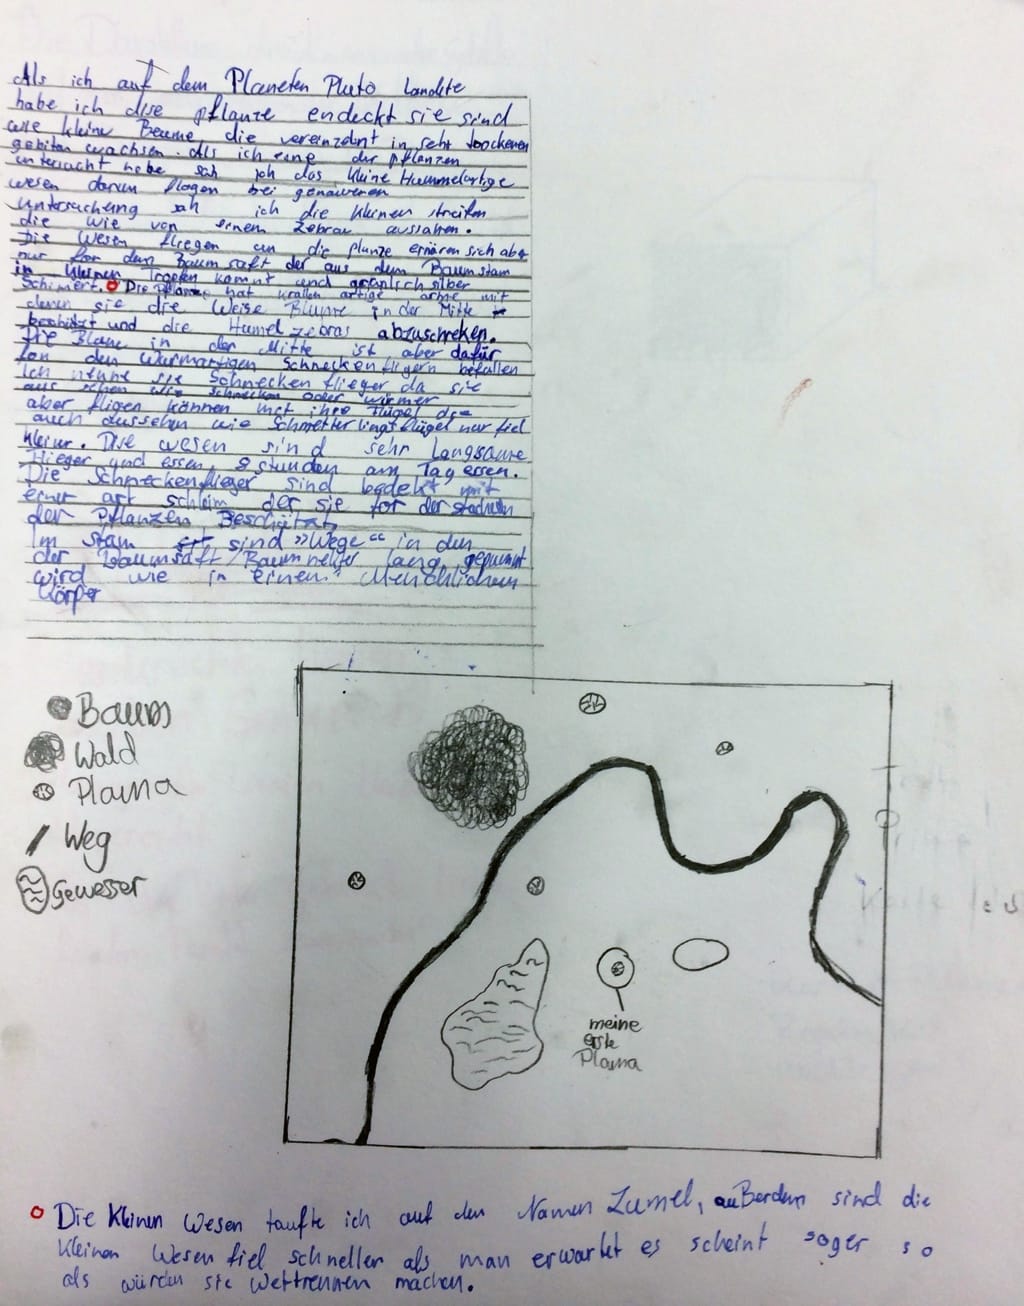 Als ich auf dem Planeten Pluto landete
habe ich dise pflanze endeckt sie sind
wie kleine Beume die vereinzelnt in sehr trockenen
gebiten wachsen. Als ich eine der pflanzen
untersucht habe sah ich das kleine Hummelartige
wesen darum flogen bei genaueren
untersuchung sah ich die kleinen streifen
die wie von einem Zebra aussahen.
Die Wesen fliegen an die planze ernären sich aber
nur for dem Baum saft der aus dem Baumstam
in kleinen Tropfen kommt und grünlich silber
Schimert. Die Pflanze hat krallen artige arme mit
denen sie die Weise Blume in der Mitte
beshützt und die Humel zebras abzuschreken.
Die Blume in der Mitte ist aber dafür
fon den Wurmartigen Schneckenfligern befallen
Ich nenne sie Schnecken flieger da sie
aus sehen wie schnecken oder würmer
aber fligen können mit ihre flügel die
auch aussehen wie Schmetterlingsflügel nur fiel
kleiner. Dise wesen sind sehr langsame
flieger und essen 8 stunden am Tag essen.
Die Schneckenflieger sind bedekt mit
einer art schleim der sie for der stacheln
der Pflanzen Beschützt
Im stam sind "Wege" in den
der baumsaft/Baumnektar lang gepumt
wird wie in einem Menchlichen
Körper
Baum
Wald
Plama
Weg
Gewesser
meine
erste
Plama
Die kleinen Wesen taufte ich auf den Namen Zumel, außerdem sind die
kleinen Wesen fiel schneller als man erwartet es scheint soger so
als würden sie Wettrennen machen.